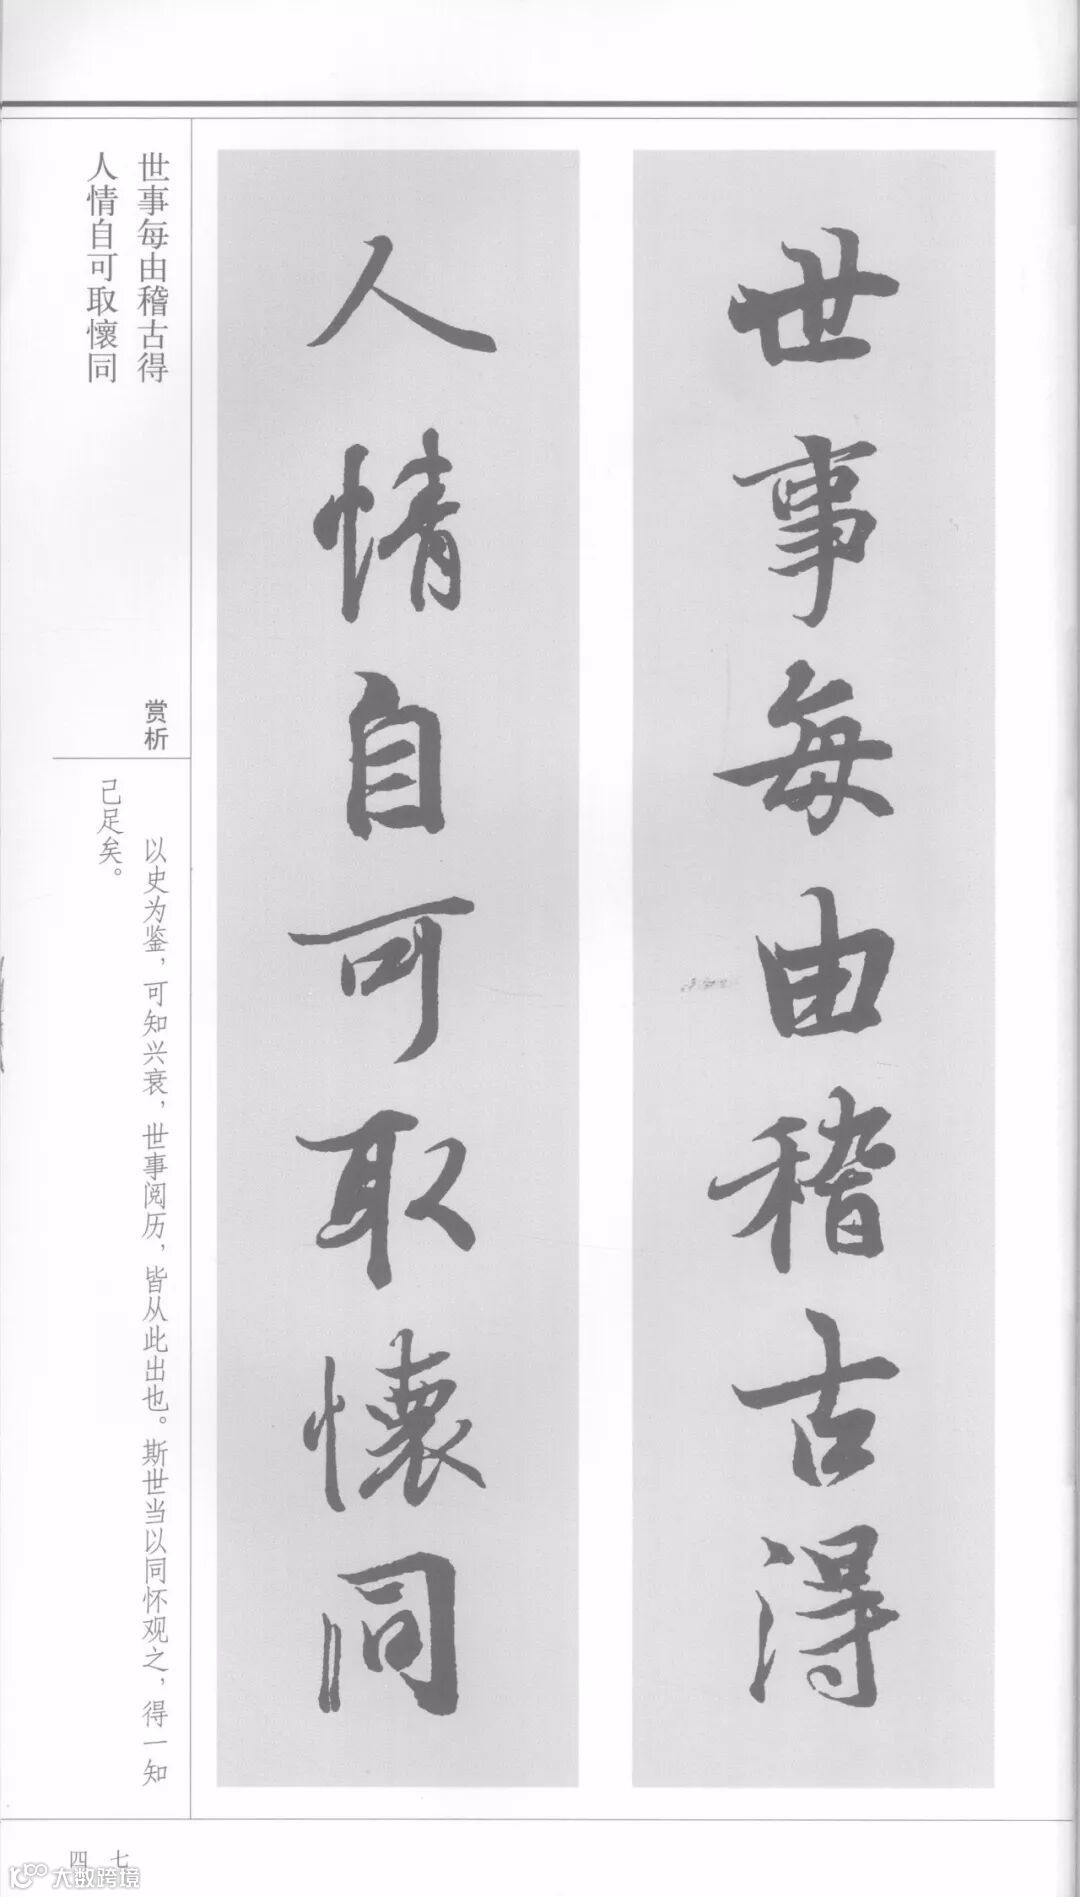 世事每由稽古得
人情自可取懷同
世事每由稽古得
人情自可取懷同
赏析
以史为鉴，可知兴衰，世事阅历，皆从此出也。斯世当以同怀观之，得一知
己足矣。
四七
大数跨境